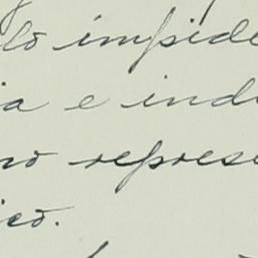 lo impide
ia e ind
no represe
ico.